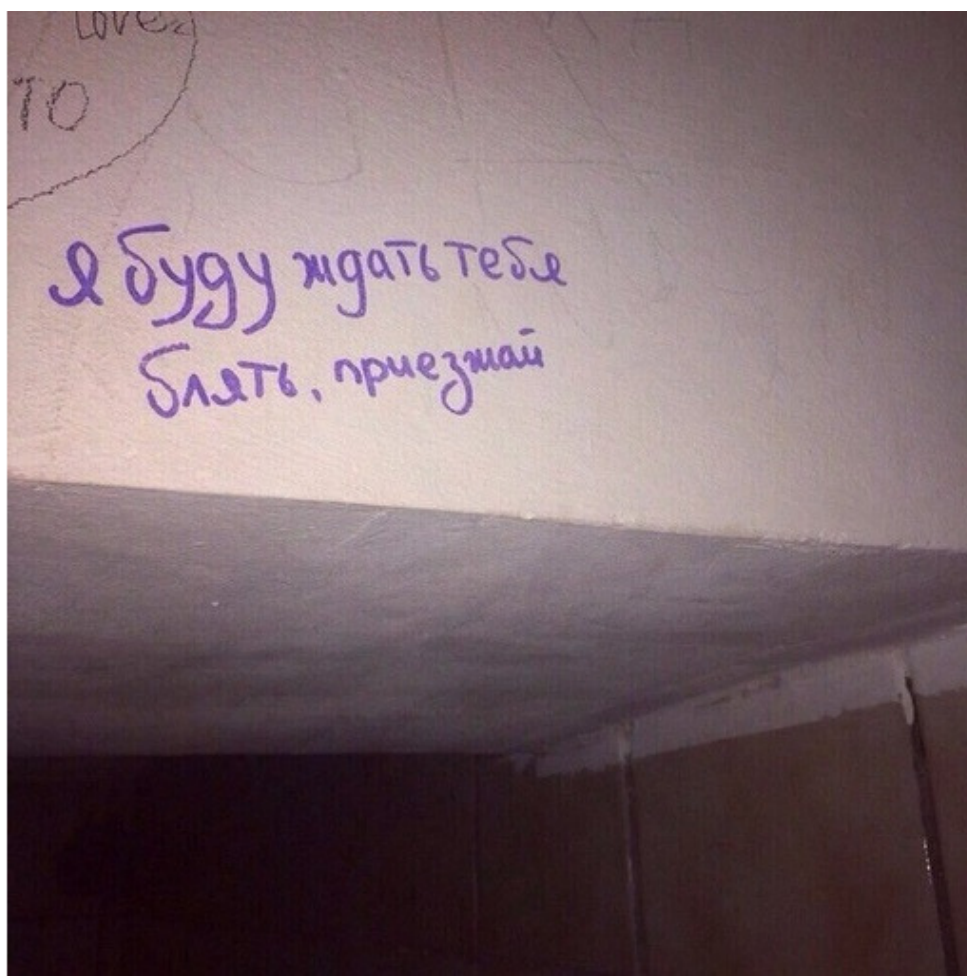 Love
то
Я буду ждать тебя
блять, приезжай